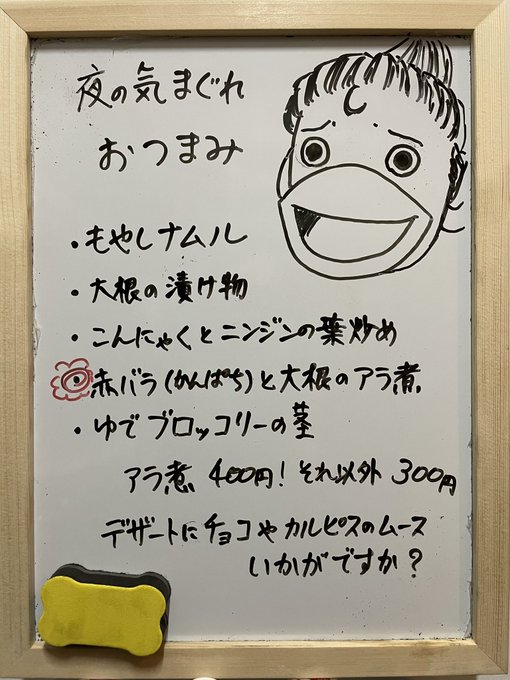 夜の気まぐれ
おつまみ
・もやしナムル
・大根の漬け物
・こんにゃくとニンジンの葉炒め
・赤バラ(かんぱち)と大根のアラ煮
・ゆでブロッコリーの茎
アラ煮 400円! それ以外 300円
デザートにチョコやカルピスのムース
いかがですか?